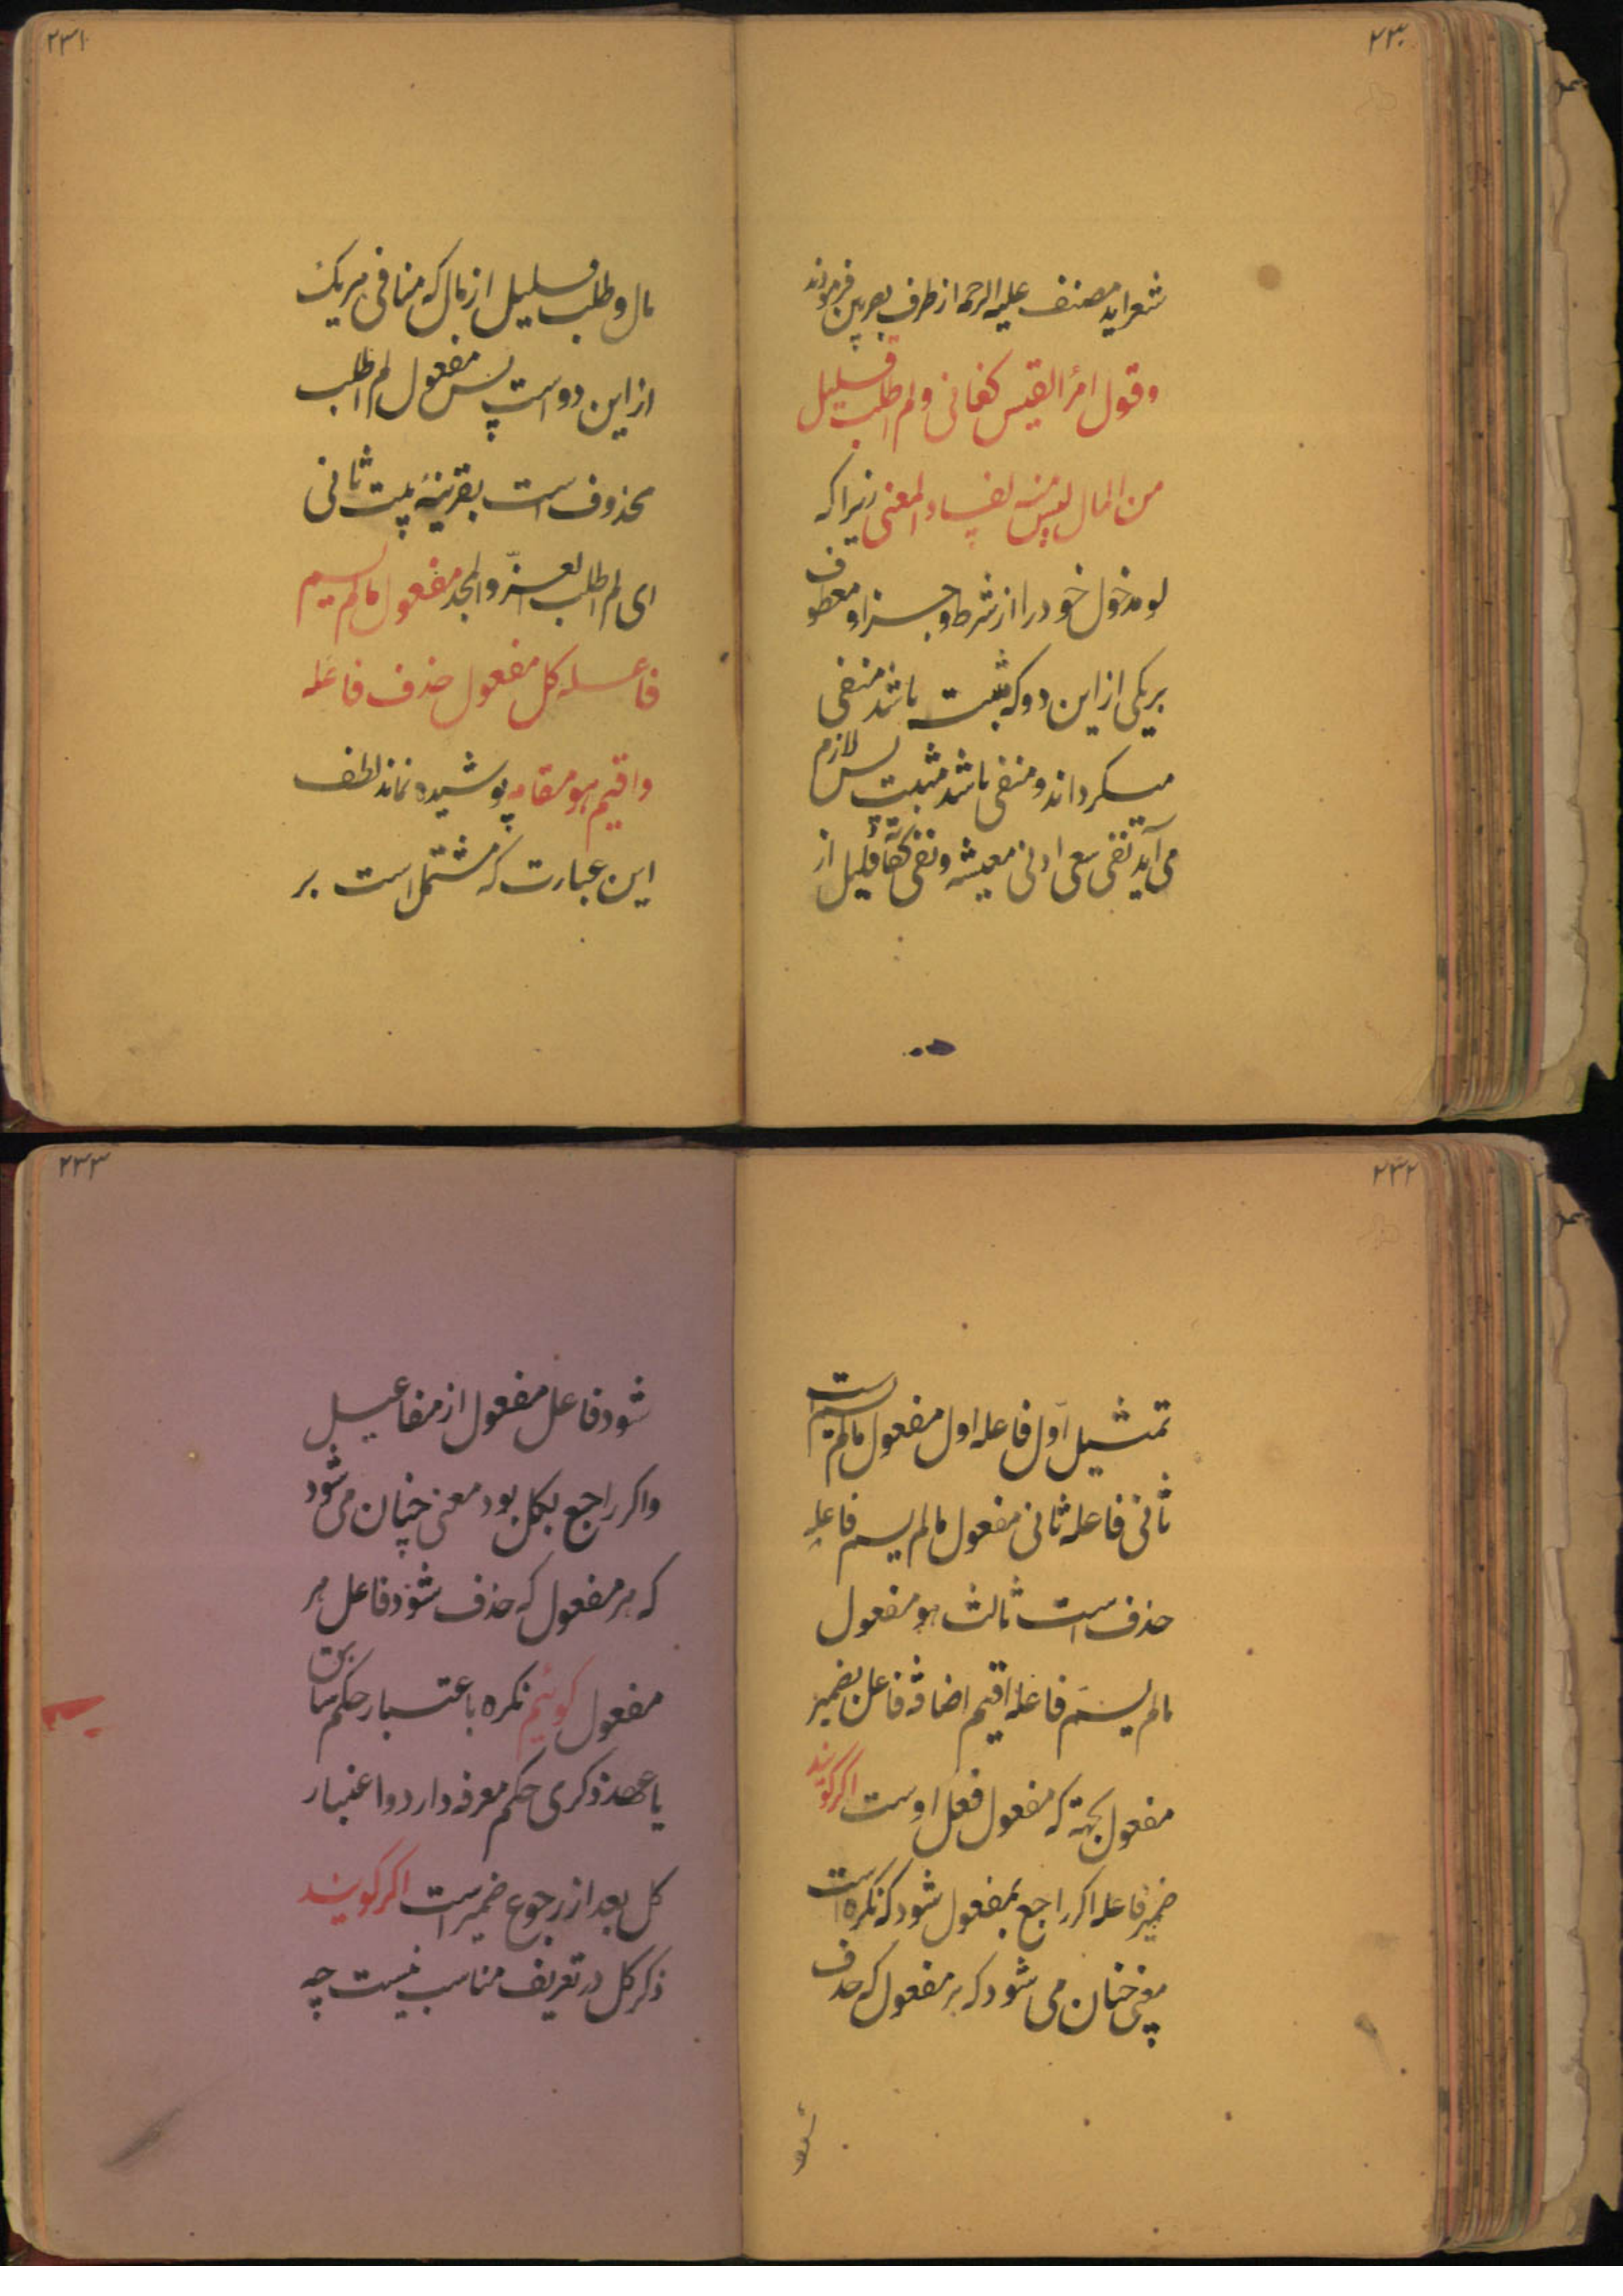 ۲۳۰
شعراید مصنف علیه الرحمه از طرف بصریین فرمودند
وقول امرأ القیس کفانی ولم اطلب قلیل
من المال لیس منه لفساد المعنی زیراکه
لو مدخول خود را از شرط و جزا و معطوف
بریکی از این دو که مثبت باشد منفی
میکرداند و منفی باشد مثبت پس لازم
می آید نفی سعی ادنی معیشه و نفی کفآئة قلیل از
۲۳۱
مال و طلب قلیل از مال که منافی هریک
از این دو است پس مفعول لم اطلب
محذوف است بقرینه بیت ثانی
ای لم اطلب العزّ والمجد مفعول مالم یسم
فاعله کل مفعول حذف فاعله
واقیم هو مقامه پوشیده نماند لطف
این عبارت که مشتمل است بر
۲۳۲
تمثیل اوّل فاعله اول مفعول مالم یسم است
ثانی فاعله ثانی مفعول مالم یسم فاعله
حذف است ثالث هو مفعول
مالم یسم فاعله اقیم اضافه فاعل بضمیر
مفعول بجهة که مفعول فعل اوست اگر گویند
ضمیر فاعله اکر راجع بمفعول شود که نکره است
معنی چنان می شود که هر مفعول که حذف
شود
۲۳۳
شود فاعل مفعول از مفاعیل
واکر راجع بکل بود معنی چنان می شود
که هر مفعول که حذف شود فاعل هر
مفعول کوئیم نکره باعتبار حکم سابق
یا عهد ذکری حکم معرفه دارد و اعتبار
کل بعد از رجوع ضمیر است اکر کویند
ذکر کل در تعریف مناسب نیست چه